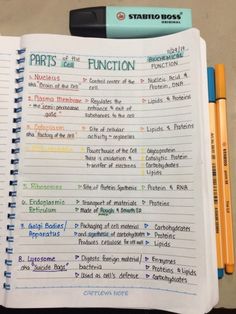 STABILO BOSS
ORIGINAL
PARTS of the Cell FUNCTION BIOCHEMICAL FUNCTION
1. Nucleus
aka "Brain of the Cell"
Control center of the cell
Nucleic Acid & Protein, DNA
2. Plasma Membrane
the semi-permeable "gate"
Regulates the entrance & exit of substances to the cell
Lipids & Proteins
3. Cytoplasm
aka Factory of the cell
Site of cellular activity
Lipids, Proteins
Powerhouse of the Cell
There is oxidation & transfer of electrons
Catalytic Protein
transfer of electrons
Carbohydrates
Lipids
5. Ribosomes
Site of Protein Synthesis
Protein & RNA
6. Endoplasmic Reticulum
Transport of materials
Made of Rough & Smooth ER
Proteins
7. Golgi Bodies/ Apparatus
Packaging of cell material and synthesis of carbohydrates
Produces cellulose for cell wall
Carbohydrates
Proteins
Lipids
8. Lysosome
aka "Suicide Bags"
Digests foreign material/ bacteria
Used as cell's defense
Enzymes
Proteins & Lipids
Carbohydrates
CATTLEYA NOTE